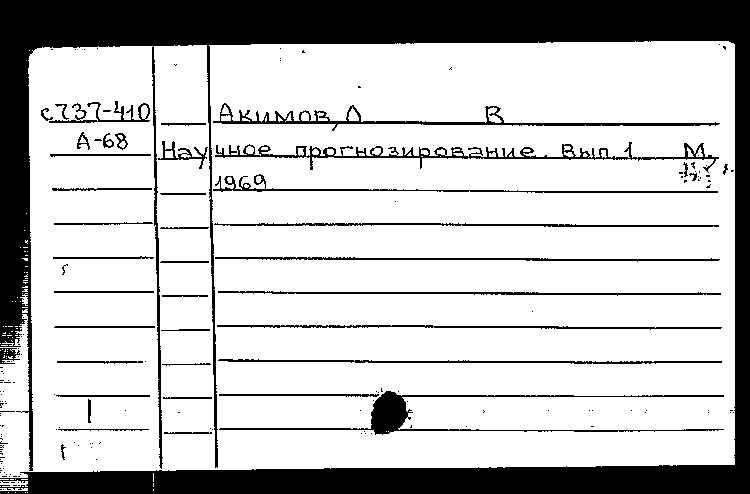 с737-410 Акимов, Л В
А-68 Научное прогнозирование. Вып. 1 М.,
1969